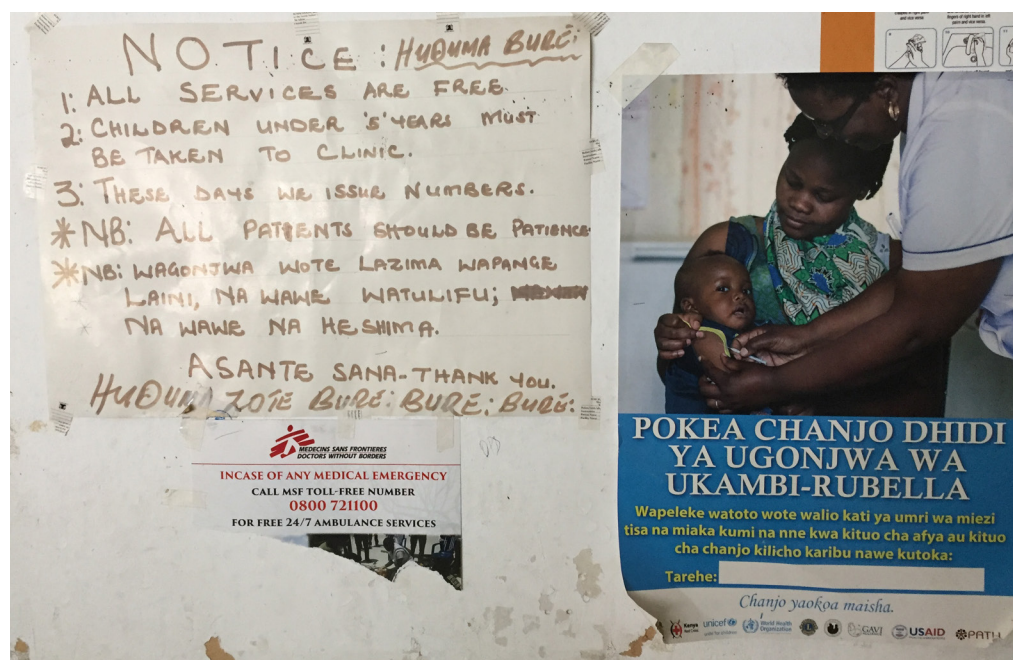 NOTICE: HUDUMA BURE:
1: ALL SERVICES ARE FREE.
2: CHILDREN UNDER '5' YEARS MUST
BE TAKEN TO CLINIC.
3: THESE DAYS WE ISSUE NUMBERS.
* NB: ALL PATIENTS SHOULD BE PATIENCE
* NB: WAGONJWA WOTE LAZIMA WAPANGE
LAINI, NA WAWE WATULIFU;
NA WAWE NA HESHIMA.
ASANTE SANA-THANK YOU.
HUDUMA ZOTE BURE: BURE: BURE:
MEDECINS SANS FRONTIERES
DOCTORS WITHOUT BORDERS
INCASE OF ANY MEDICAL EMERGENCY
CALL MSF TOLL-FREE NUMBER
0800 721100
FOR FREE 24/7 AMBULANCE SERVICES
and vice versa
POKEA CHANJO DHIDI
YA UGONJWA WA
UKAMBI-RUBELLA
Wapeleke watoto wote walio kati ya umri wa miezi
tisa na miaka kumi na nne kwa kituo cha afya au kituo
cha chanjo kilicho karibu nawe kutoka:
Tarehe:
Chanjo yaokoa maisha.
Kenya
unicef
World Health
Organization
GAVI
USAID
PATH